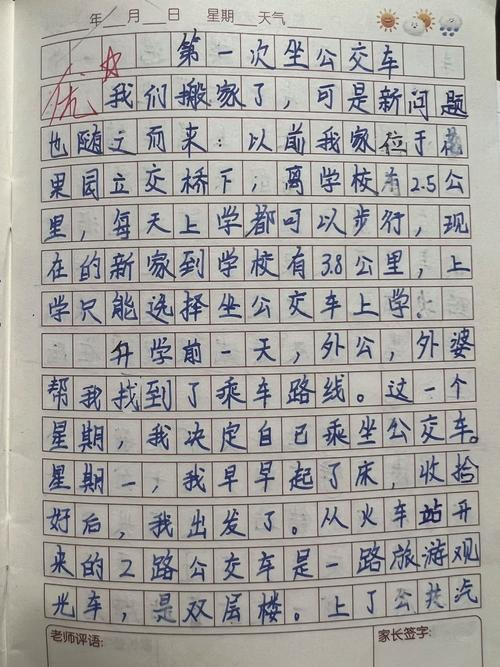 年 月 日 星期 天气
第一次坐公交车
优
我们搬家了，可是新问题
也随之而来：以前我家位于花
果园立交桥下，离学校有2.5公
里，每天上学都可以步行，现
在的新家到学校有3.8公里，上
学只能选择坐公交车上学。
升学前一天，外公，外婆
帮我找到了乘车路线。过一个
星期，我决定自己乘坐公交车。
星期一，我早早起了床，收拾
好后，我出发了。从火车站开
来的2路公交车是一路旅游观
光车，是双层楼。上了公共汽
老师评语：
家长签字：